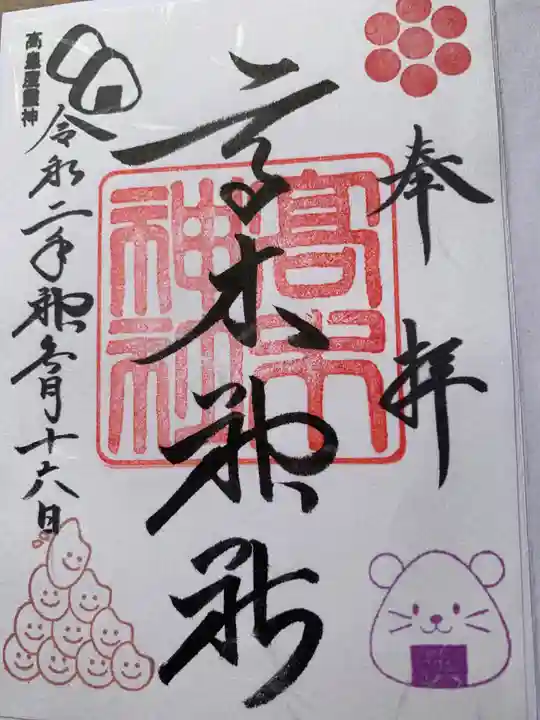 奉拝
高木神社
高木神社
令和二年神無月十六日
高皇産霊神